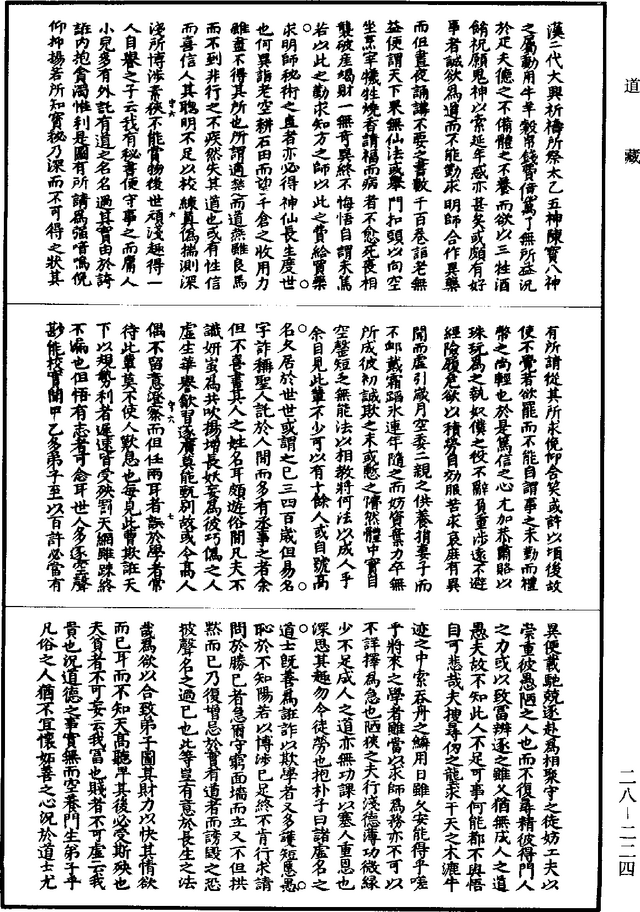 道藏
漢二代大興祈禱所祭太乙五神陳寶八神
之屬動用牛羊穀帛錢費億萬了無所益況
於疋夫德之不備體之不養而欲以三牲酒
餚祝願鬼神以索延年惑亦甚矣或頗有好
事者誠欲為道而不能勤求明師合作異藥
而但晝夜誦講不要之書數千百卷詣老無
益便謂天下果無仙法或舉門扣頭以向空
坐烹宰犧牲燒香請福而病者不愈死喪相
襲破產竭財一無奇異終不悔悟自謂未篤
若以此之勤求知方之師以此之費給買藥
求明師秘術之直者亦必得神仙長生度世
也何異詣老空耕石田而望千倉之收用力
雖盡不得其所也所謂適楚而道燕雖良馬
而不到非行之不疾然失其道也或有性信
而喜信人其聰明不足以校練真偽揣測深
淺所博涉素狹不能賞物後世頑淺趣得一
人自譽之子云我有秘書便守事之而庸人
小兒多有外託有道之名名過其實由於誇
誑內抱貪濁惟利是圖有所請為強喑嗚俛
仰抑揚若所知寶秘乃深而不可得之狀其
有所請從其所求俛仰含笑或許以頃後故
使不覺者欲罷而不能自謂事之未勤而禮
幣之尚輕也於是篤信之心尤加恭肅賂以
珠玩為之執奴僕之役不辭負重涉遠不避
經險履危欲以積勞自効服苦求哀庶有異
聞而虛引歲月空委二親之供養捐妻子而
不卹戴霜蹈氷連年隨之而妨資棄力卒無
所成彼初誠欺之末或慙之懵然體中實自
空罄短乏無能法以相教將何法以成人乎
余目見此輩不少可以有十餘人或自號高
名久居於世世或謂之已三四百歲但易名
字詐稱聖人託於人間而多有承事之者余
但不喜書其人之姓名耳頗遊俗間凡夫不
識妍蚩為共吹揚增長妖妄為彼巧偽之人
虛生華譽歙習逐廣莫能甄別故或令高人
偶不留意澄察而但任兩耳者誤於學者常
待此輩莫不使人歎息也每見此曹欺誑天
下以規勢利者遲速皆受殃罰天網雖踈終
不漏也但悟有志者可念耳世人多逐空聲
尠能校實聞甲乙多弟子至以百許必當有
異便載馳競逐赴為相聚守之徒妨工夫以
崇重彼愚陋之人也而不復尋精彼得門人
之力或以致富辨逐之雖久猶無成人之道
愚夫故不知此人不足可事何能都不與悟
自可悲哉夫搜尋仞之壟求干天之木漉牛
迹之中索吞舟之鱗用日雖久安能得乎嗟
乎將來之學者雖當以求師為務亦不可以
不詳擇為急也陋狹之夫行淺德薄功微緣
少不足成人之道亦無功課以塞人重恩也
深思其趣勿令徒勞也抱朴子曰諸虛名之
道士既善為誑詐以欺學者又多護短匿愚
恥於不知陽若以博涉已足終不肯行求請
問於勝已者急爾守窮面墻而立又不但拱
默而已乃復憎忌於實有道者而謗毀之恐
彼聲名之過已也此等豈有意於長生之法
哉為欲以合致弟子圖其財力以快其情欲
而已耳而不知天高聽卑其後必受斯殃也
夫貧者不可妄云我富也賤者不可虛云我
貴也況道德之事實無而空養門生弟子乎
凡俗之人猶不宜懷妬善之心況於道士尤
守六
六
守六
七
二八—二二四